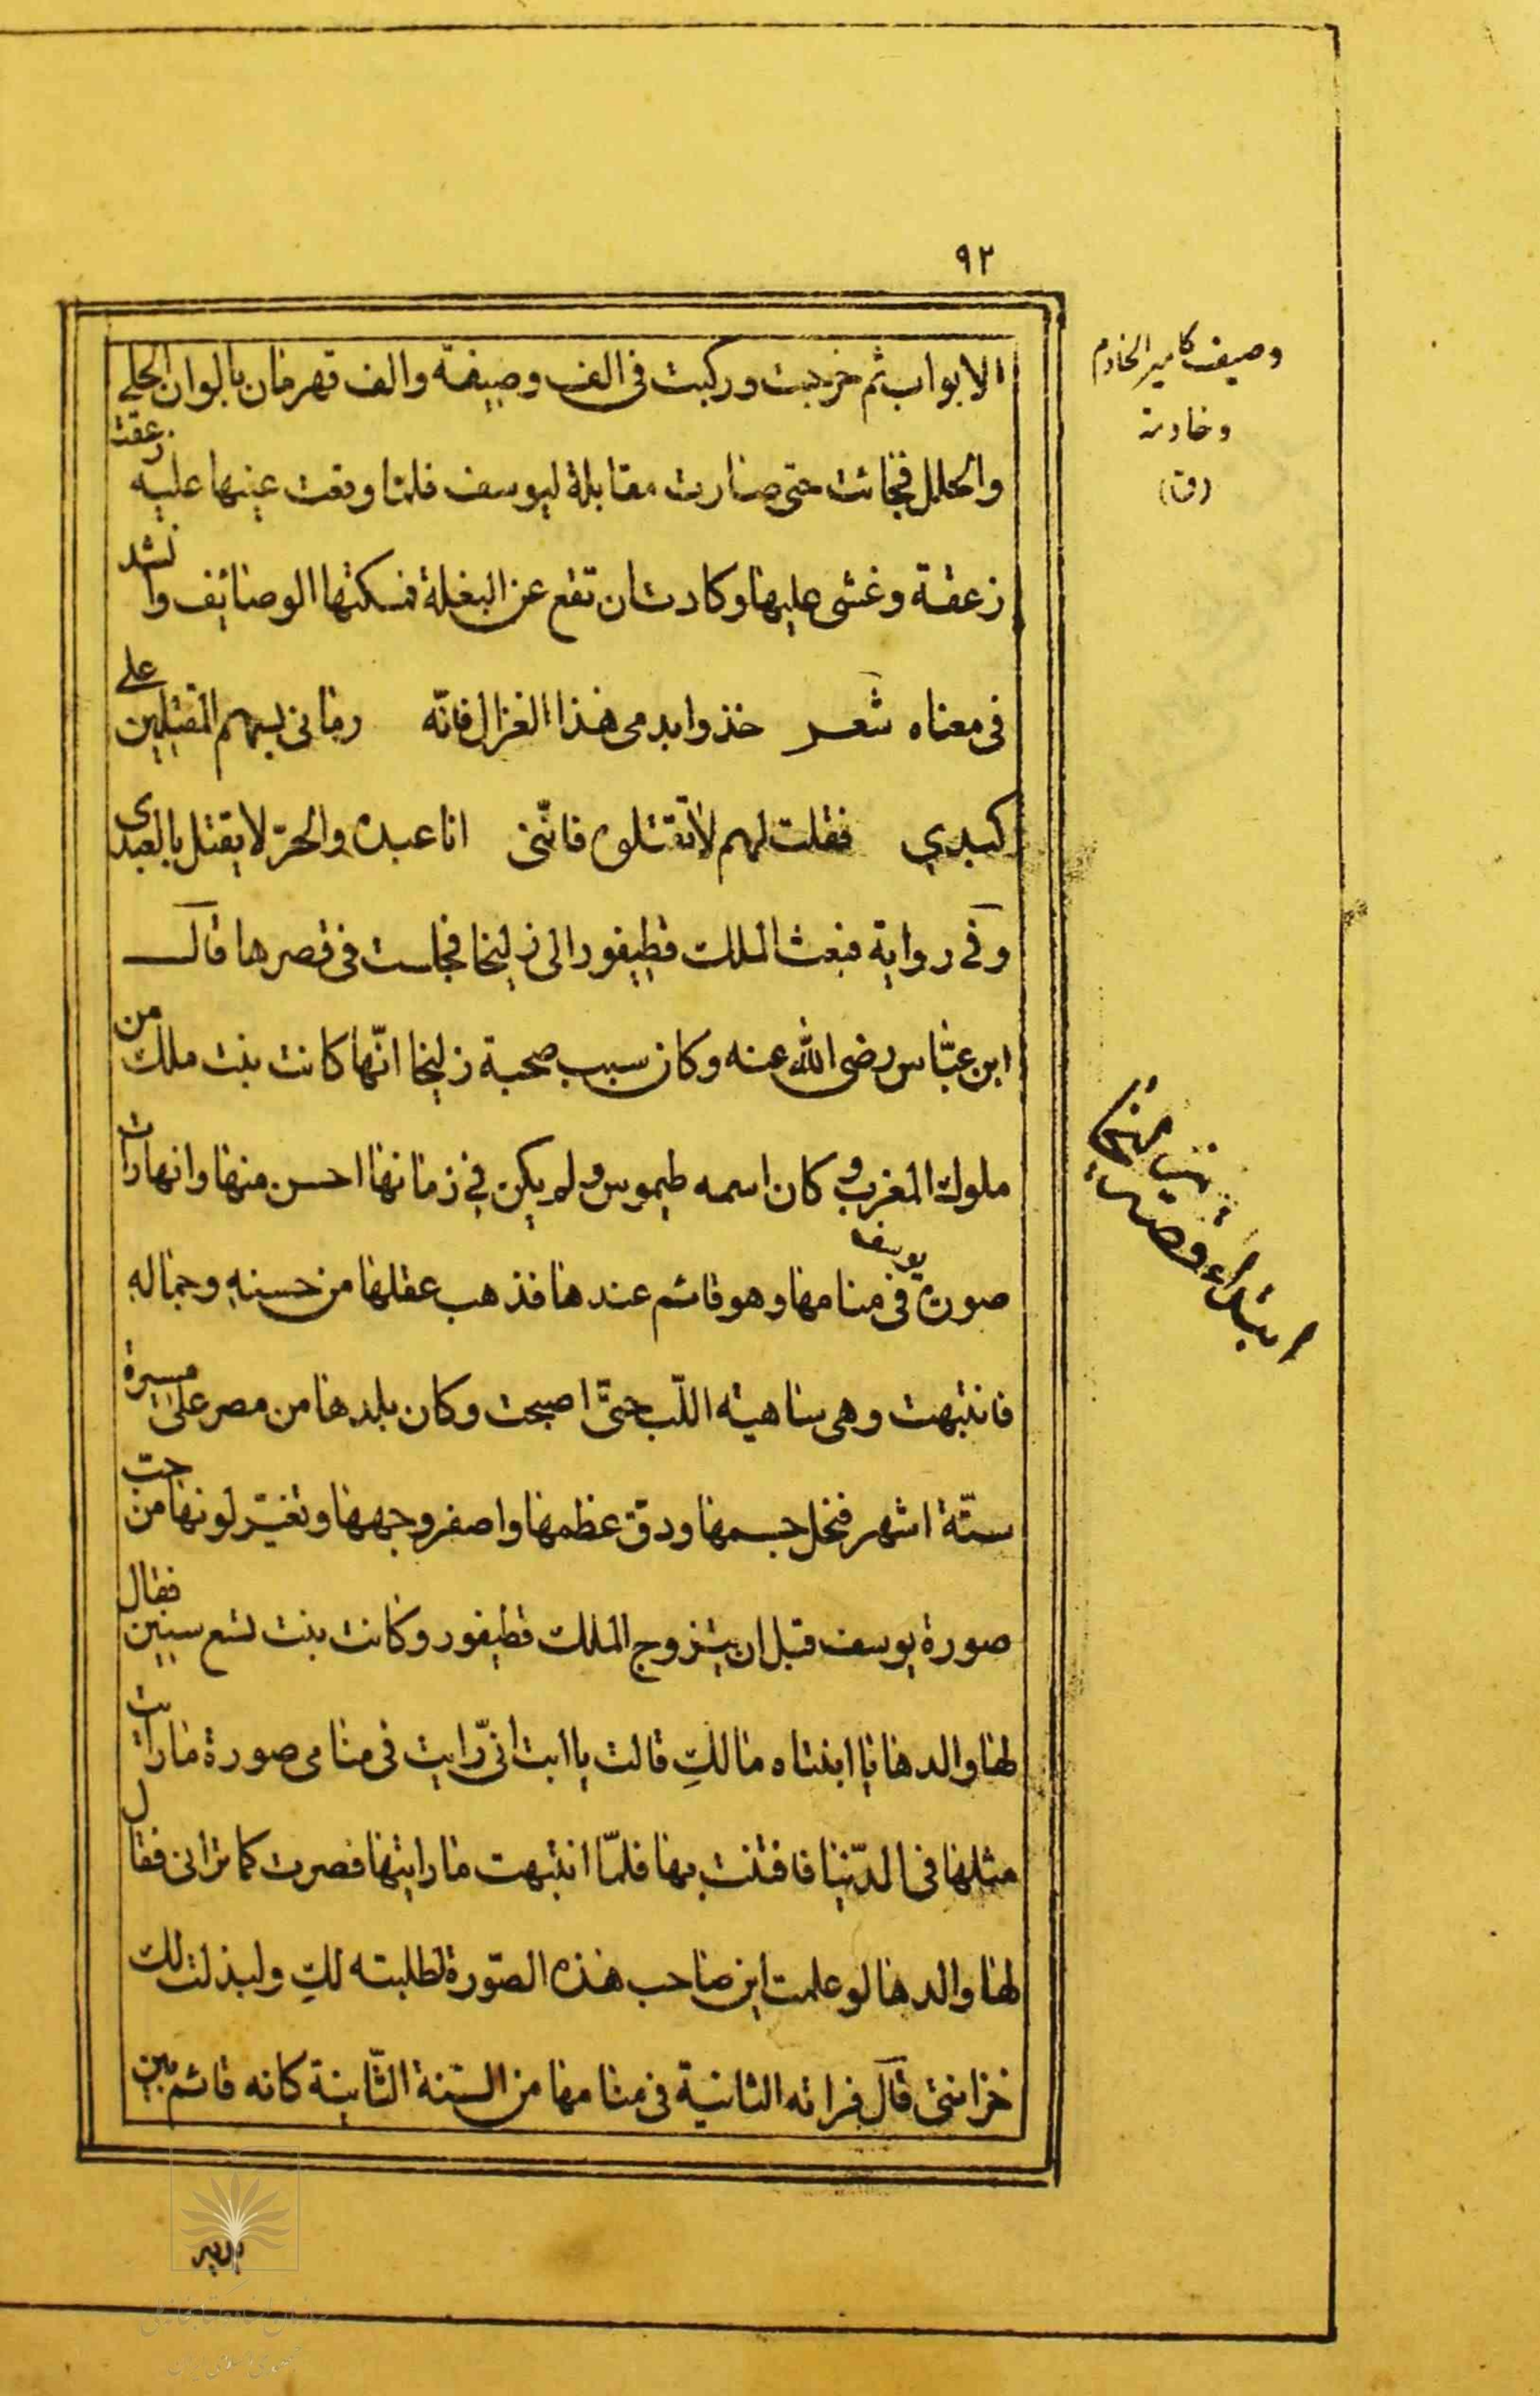 ٩٢
الابواب ثم خرجت وركبت فى الف وصيفة والف قهرمان بالوان الحلى
والحلل فجائت حتى صارت مقابلة ليوسف فلمّا وقعت عينها عليه زعقت
زعقة وغشى عليها وكادت ان تقع عن البغلة فمسكتها الوصايف وانشد
فى معناه شعر خذوا بدمى هذا الغزال فانّه رمانى بسهم المقتلين على
كبدي فقلت لهم لا تقتلوه فانّنى انا عبده والحرّ لا يقتل بالعبدى
وفى رواية فبعث الملك قطيفور الى زليخا فجلست فى قصرها قال
ابن عبّاس رضى الله عنه وكان سبب صحبة زليخا انّها كانت بنت ملك من
ملوك المغرب وكان اسمه طيموس ولم يكن فى زمانها احسن منها وانها رات
صورة يوسف فى منامها وهو قائم عندها فذهب عقلها من حسنهِ وجمالهِ
فانتبهت وهى ساهية اللّب حتّى اصبحت وكان بلدها من مصر على مسيرة
ستّة اشهر فنحل جسمها ودقّ عظمها واصفر وجهها وتغيّر لونها من حبّ
صورة يوسف قبل ان يتزوج الملك قطيفور وكانت بنت تسع سنين فقال
لها والدها يا ابنتاه ما لكِ قالت يا ابت انّى رايت فى منامى صورة ما رات
مثلها فى الدّنيا فافتنت بها فلمّا انتبهت ما رايتها فصرت كما ترانى فقال
لها والدها لو علمت اين صاحب هذه الصّورة لطلبته لكِ ولبذلت لك
خزاينى قال فراته الثانية فى منامها من السّنة الثّانية كانه قائم بين
وصيف كامير الخادم
وخادمة
(ق)
ابتداء قصه زليخا